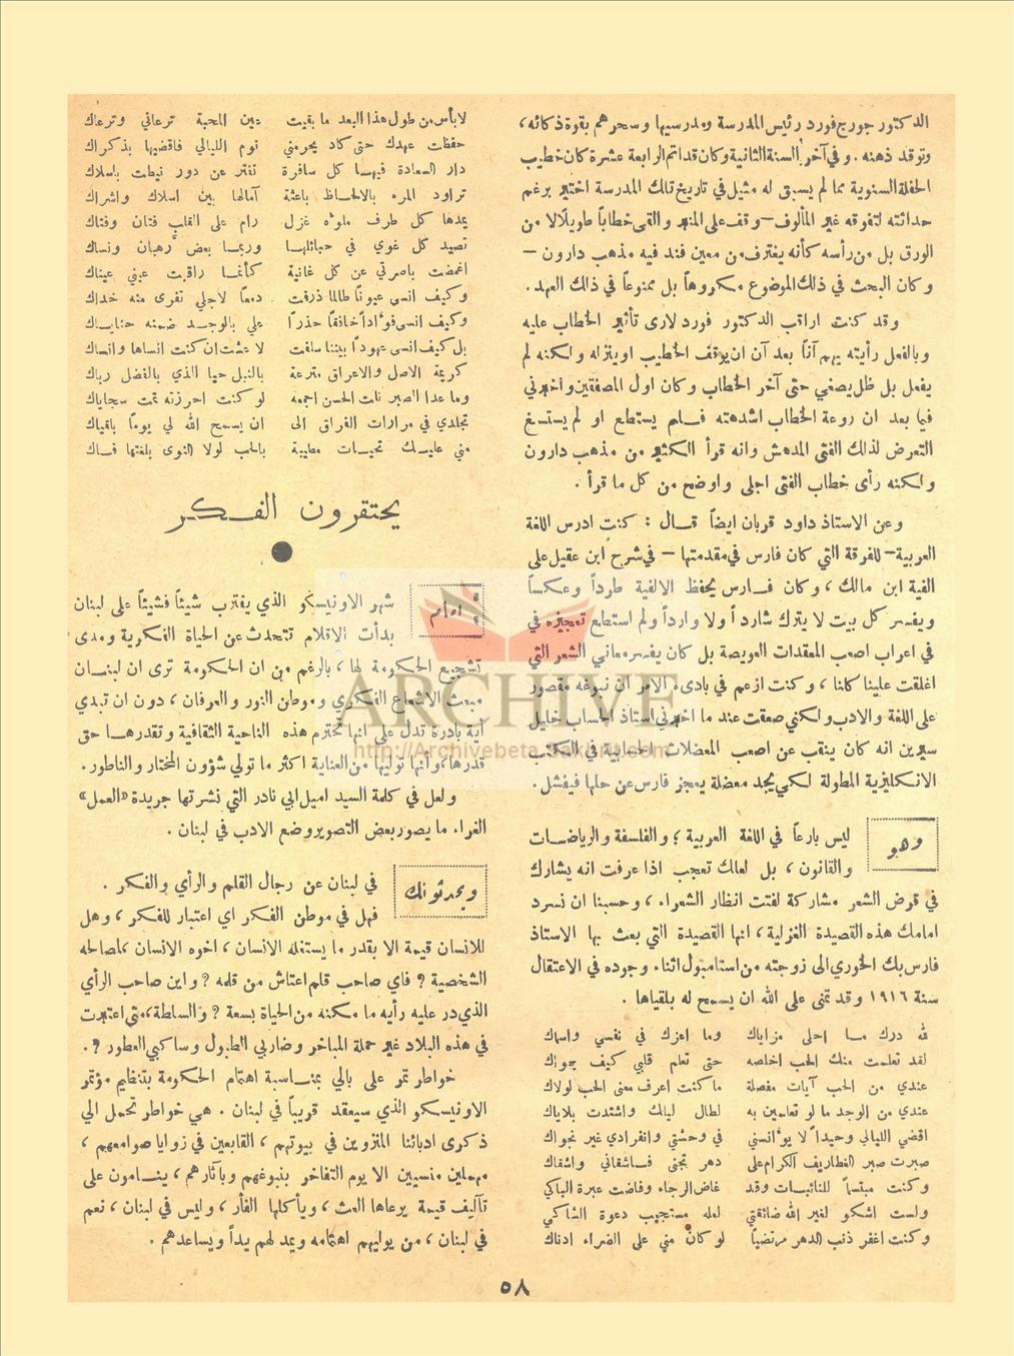 الدكتور جورج فورد رئيس المدرسة ومدرسيها وسحرهم بقوة ذكائه،
وتوقد ذهنه. وفي آخر السنة الثانية وكان قد اتم الرابعة عشرة كان خطيب
الحفلة السنوية مما لم يسبق له مثيل في تاريخ تلك المدرسة اختير برغم
حداثته لتفوقه غير المألوف – وقف على المنبر والقى خطاباً طويلاً لا من
الورق بل من رأسه كأنه يغترف من معين فند فيه مذهب دارون –
وكان البحث في ذلك الموضوع مكروهاً بل ممنوعاً في ذلك العهد.
وقد كنت اراقب الدكتور فورد لارى تأثير الخطاب عليه
وبالفعل رأيته يهم آناً بعد آن ان يوقف الخطيب او ينزله ولكنه لم
يفعل بل ظل يصغي حتى آخر الخطاب وكان اول المصفقين واخبرني
فيما بعد ان روعة الخطاب اشدهته فلم يستطع او لم يستسغ
التعرض لذلك الفتى المدهش وانه قرأ الكثير من مذهب دارون
ولكنه رأى خطاب الفتى اجلى واوضح من كل ما قرأ.
وعن الاستاذ داود قربان ايضاً قال : كنت ادرس اللغة
العربية – للفرقة التي كان فارس في مقدمتها – في شرح ابن عقيل على
الفية ابن مالك ، وكان فارس يحفظ الالفية طرداً وعكساً
ويفسر كل بيت لا يترك شارداً ولا وارداً ولم استطع تعجيزه في
في اعراب اصعب المعقدات العويصة بل كان يفسر معاني الشعر التي
اغلقت علينا كلنا ، وكنت ازعم في بادىء الامر ان نبوغه مقصور
على اللغة والادب ولكني صعقت عند ما اخبرني استاذ الحساب خليل
انه كان ينقب عن اصعب المعضلات الحسابية في الكتب
الانكليزية المطولة لكي يجد معضلة يعجز فارس عن حلها فيفشل.
وهو ليس بارعاً في اللغة العربية ؛ والفلسفة والرياضيات
والقانون ، بل لعلك تعجب اذا عرفت انه يشارك
في قرض الشعر مشاركة لفتت انظار الشعراء ، وحسبنا ان نسرد
امامك هذه القصيدة الغزلية ، انها القصيدة التي بعث بها الاستاذ
فارس بك الخوري الى زوجته من استامبول اثناء وجوده في الاعتقال
سنة ١٩١٦ وقد تمنى على الله ان يسمح له بلقياها .
لله درك ما احلى مزاياك وما اعزك في نفسي واسماك
لقد تعلمت منك الحب اخلصه حتى تعلم قلبي كيف يهواك
عندي من الحب آيات مفصلة ما كنت اعرف معنى الحب لولاك
عندي من الوجد ما لو تعلمين به لطال ليلك واشتدت بلاياك
اقضي الليالي وحيداً لا يؤانسني في وحشتي وانفرادي غير نجواك
صبرت صبر الغطاريف الكرام على دهر تجنى فاشقاني واشقاك
وكنت مبتسماً للنائبات وقد غاض الرجاء وفاضت عبرة الباكي
ولست اشكو لغير الله ضائقتي لعله مستجيب دعوة الشاكي
وكنت اغفر ذنب الدهر مرتضياً لو كان مني على الضراء ادناك
لا بأس من طول هذا البعد ما بقيت عين المحبة ترعاني وترعاك
حفظت عهدك حتى كاد يحرمني نوم الليالي فاقضيها بذكراك
دار السعادة فيها كل سافرة تفتر عن دور نيطت باسلاك
تراود المرء بالالحاظ باعثة آمالها بين اسلاك واشراك
يمدها كل طرف ملؤه غزل رام على القلب فتان وفتاك
تصيد كل غوي في حبائلها وربما بعض رهبان ونساك
اغمضت باصرتي عن كل غانية كأنما راقبت عيني عيناك
وكيف انسى عيوناً طالما ذرفت دمعاً لاجلي تفرى منه خداك
وكيف انسى فؤاداً خافقاً حذراً علي بالوجد ضمنه حناياك
بل كيف انسى عهوداً بيننا سلفت لا عشت ان كنت انساها وانساك
كريمة الاصل والاعراق مترعة بالنبل حيا الذي بالفضل رباك
وما عدا الصبر نلت الحسن اجمعه لو كنت احرزته تمت سجاياك
تجلدي في مرارات الفراق الى ان يسمح الله لي يوماً بلقياك
مني عليك تحيات مطيبة بالحب لولا النوى بلغتها فاك
يحتقرون الفكر
شهر الاونيسكو الذي يقترب شيئاً فشيئاً على لبنان
بدأت الاقلام تتحدث عن الحياة الفكرية ومدى
تشجيع الحكومة لها ، بالرغم من ان الحكومة ترى ان لبنان
مبعث الاشعاع الفكري وموطن النور والعرفان ، دون ان تبدي
أية بادرة تدل على انها تحترم هذه الناحية الثقافية وتقدرها حق
قدرها ، وأنها توليها من العناية اكثر ما تولي شؤون المختار والناطور.
ولعل في كلمة السيد اميل ابي نادر التي نشرتها جريدة «العمل»
الغراء ما يصور بعض التصوير وضع الادب في لبنان .
ويحدثونك في لبنان عن رجال القلم والرأي والفكر .
فهل في موطن الفكر اي اعتبار للفكر ، وهل
للانسان قيمة الا بقدر ما يستغله الانسان ، اخوه الانسان ، لمصالحه
الشخصية ? فاي صاحب قلم اعتاش من قلمه ? واين صاحب الرأي
الذي در عليه رأيه ما مكنه من الحياة بسعة ? والسلطة ، متى اعتبرت
في هذه البلاد غير حملة المباخر وضاربي الطبول وساكبي العطور ?.
خواطر تمر على بالي بمناسبة اهتمام الحكومة بتنظيم مؤتمر
الاونيسكو الذي سيعقد قريباً في لبنان . هي خواطر تحمل الي
ذكرى ادبائنا المنزوين في بيوتهم ، القابعين في زوايا صوامعهم ،
مهملين منسيين الا يوم التفاخر بنبوغهم وبآثارهم ، ينامون على
تآليف قيمة يرعاها العث ، ويأكلها الفأر ، وليس في لبنان ، نعم
في لبنان ، من يوليهم اهتمامه ويمد لهم يداً ويساعدهم .
٥٨
ARCHIVE